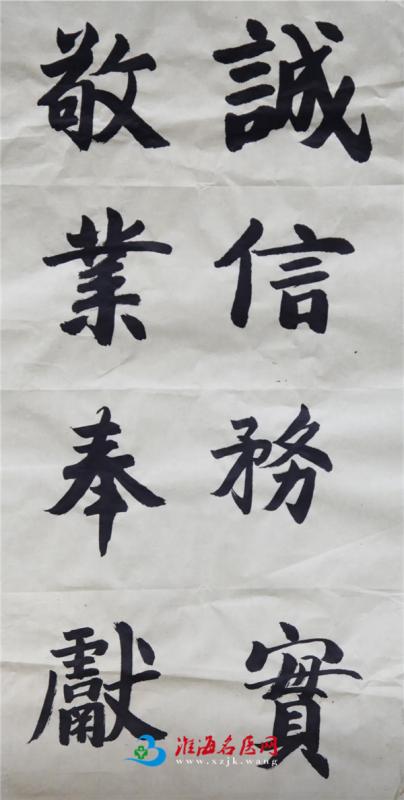 誠信務實
敬業奉獻
淮海名医网
www.xzjk.wang